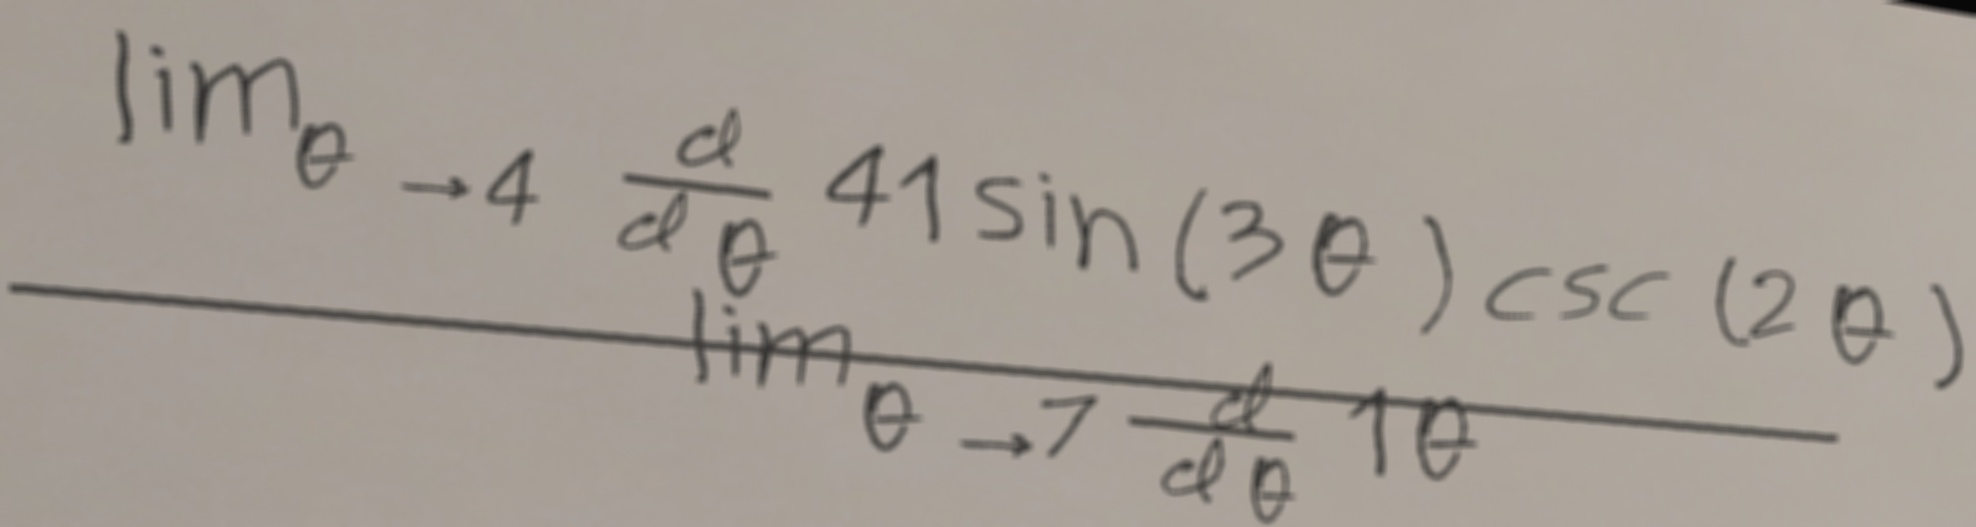 lim_{θ→4} \frac{d}{dθ} 41 sin(3θ) csc(2θ)
lim_{θ→7} \frac{d}{dθ} 1θ